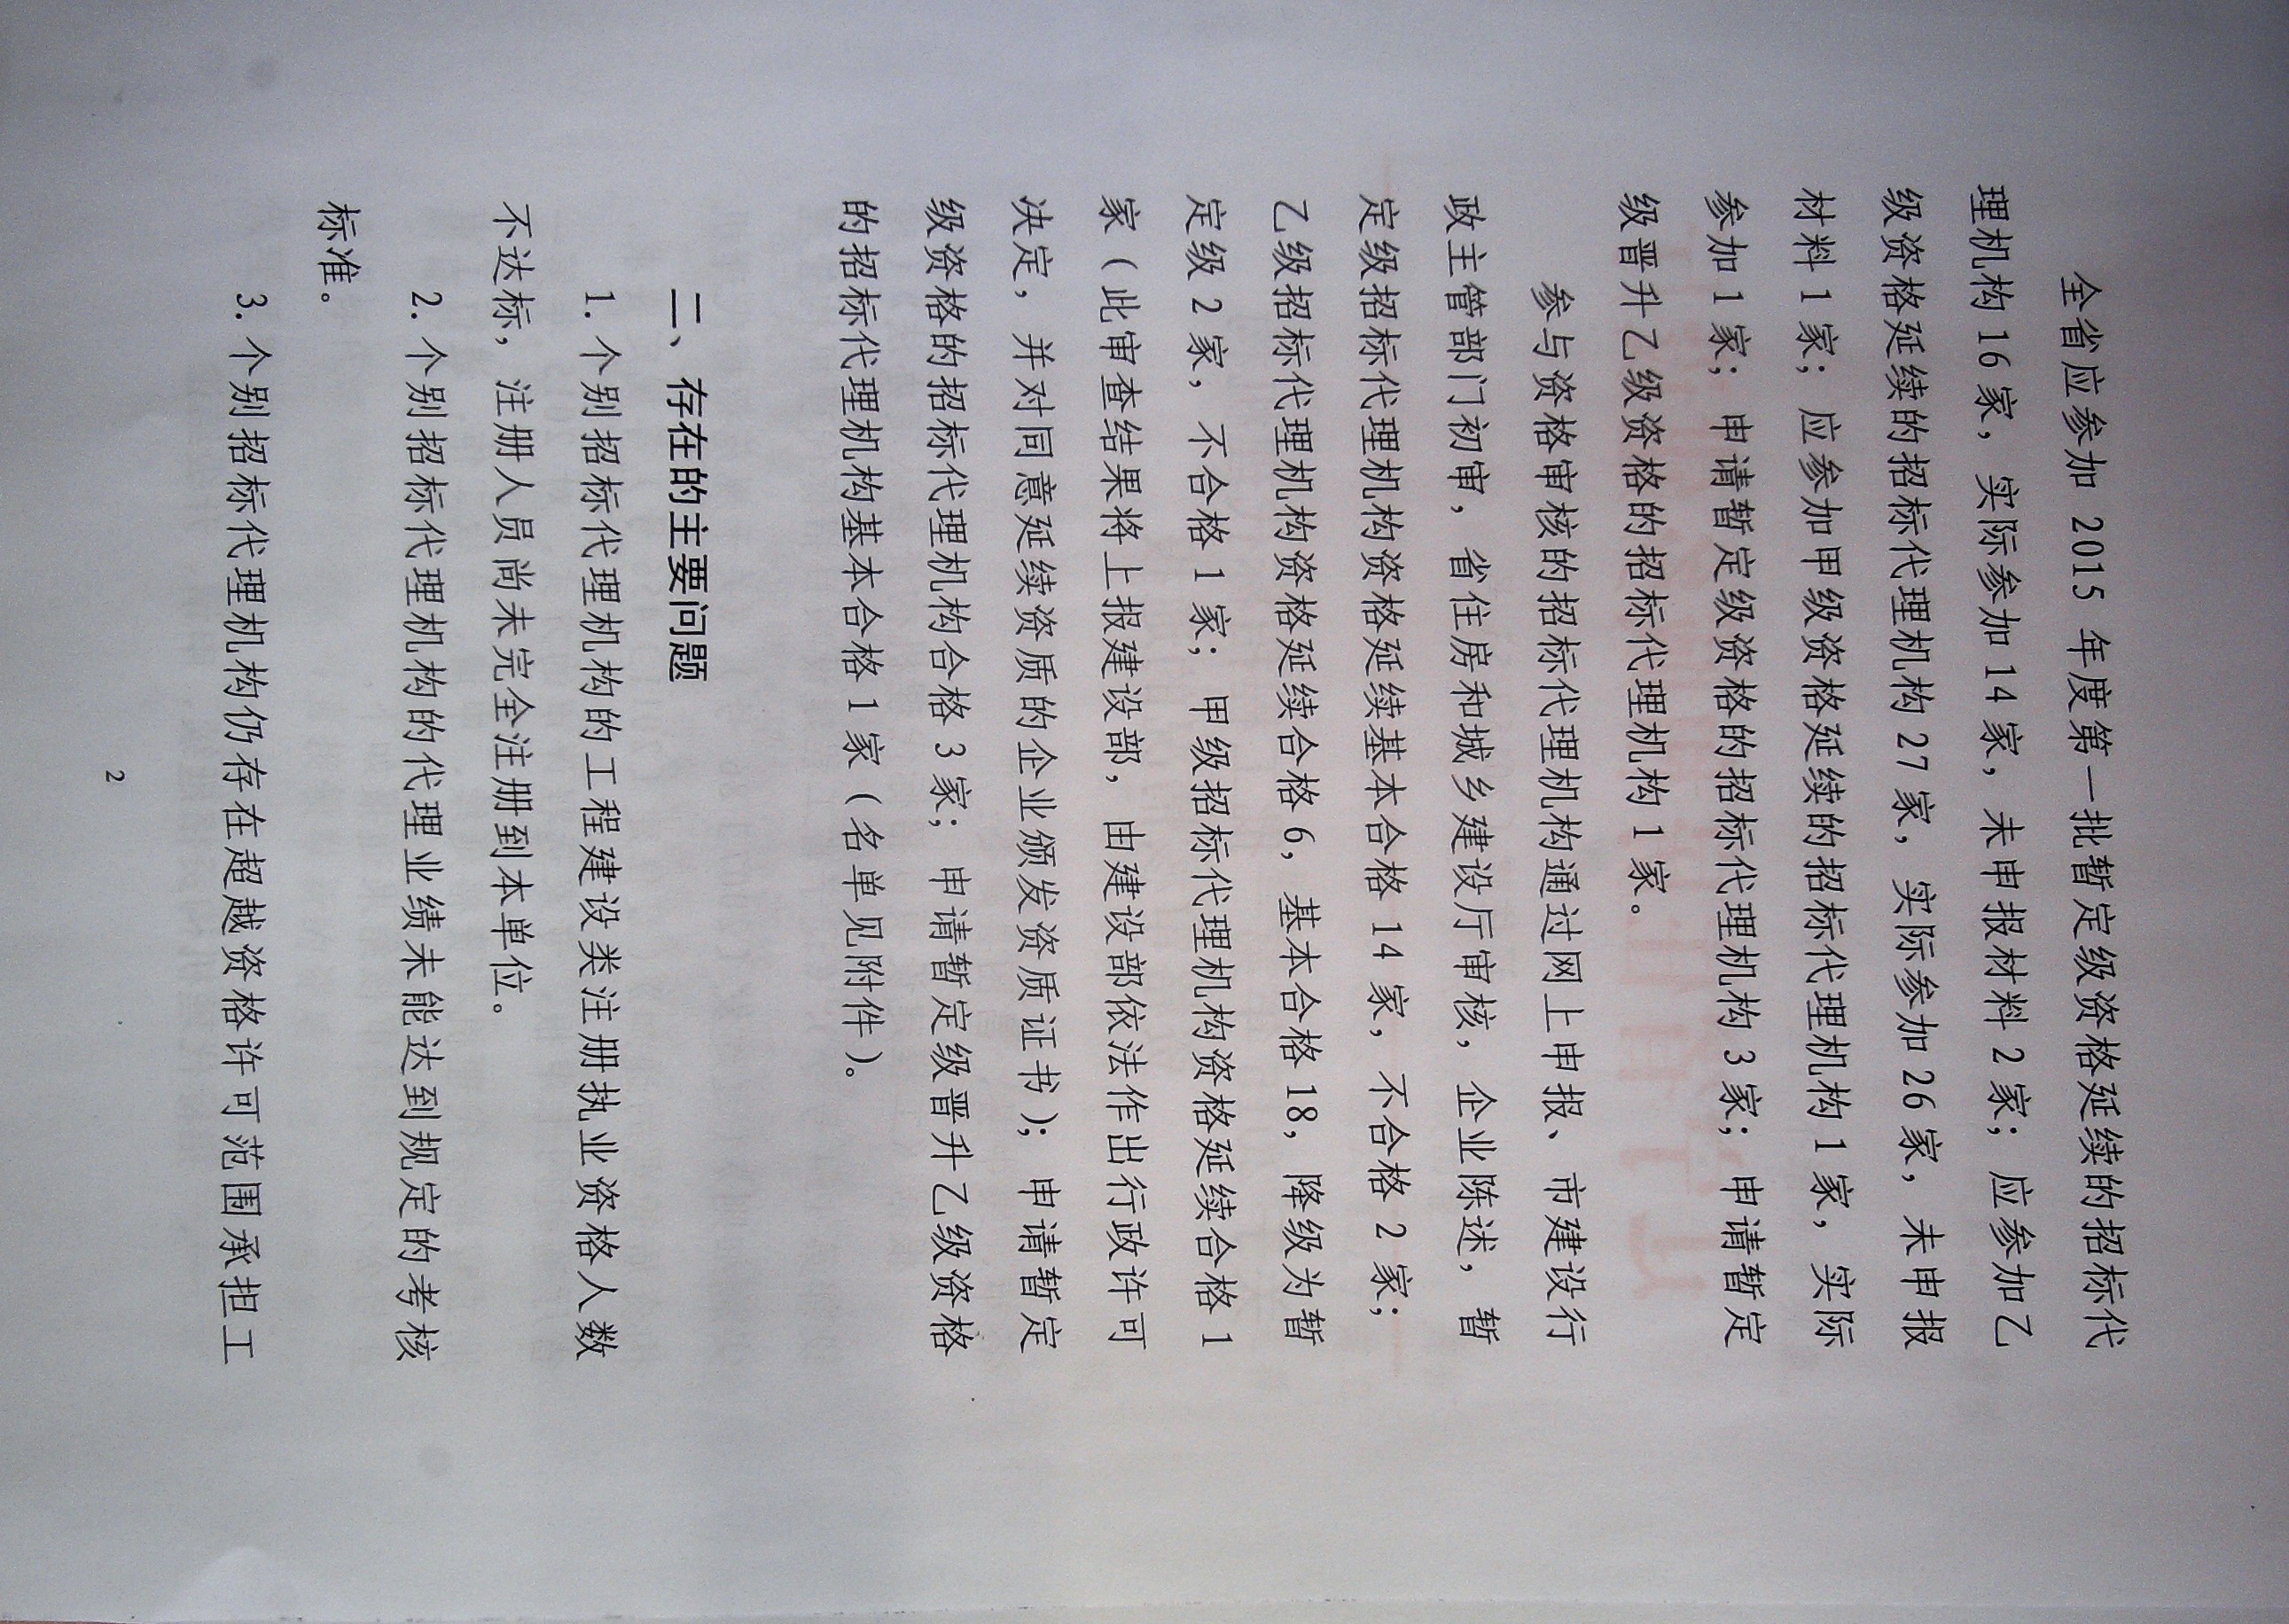 全省应参加 2015 年度第一批暂定级资格延续的招标代
理机构 16 家，实际参加 14 家，未申报材料 2 家；应参加乙
级资格延续的招标代理机构 27 家，实际参加 26 家，未申报
材料 1 家；应参加甲级资格延续的招标代理机构 1 家，实际
参加 1 家；申请暂定级资格的招标代理机构 3 家；申请暂定
级晋升乙级资格的招标代理机构 1 家。
参与资格审核的招标代理机构通过网上申报、市建设行
政主管部门初审，省住房和城乡建设厅审核，企业陈述，暂
定级招标代理机构资格延续基本合格 14 家，不合格 2 家；
乙级招标代理机构资格延续合格 6，基本合格 18，降级为暂
定级 2 家，不合格 1 家；甲级招标代理机构资格延续合格 1
家（此审查结果将上报建设部，由建设部依法作出行政许可
决定，并对同意延续资质的企业颁发资质证书）；申请暂定
级资格的招标代理机构合格 3 家；申请暂定级晋升乙级资格
的招标代理机构基本合格 1 家（名单见附件）。
二、存在的主要问题
1. 个别招标代理机构的工程建设类注册执业资格人数
不达标，注册人员尚未完全注册到本单位。
2. 个别招标代理机构的代理业绩未能达到规定的考核
标准。
3. 个别招标代理机构仍存在超越资格许可范围承担工
2